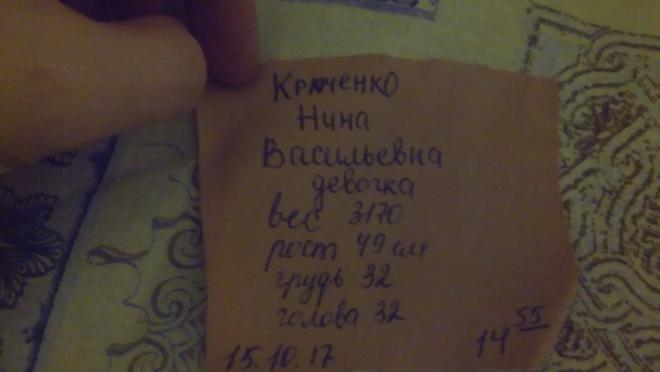 Краченко
Нина
Васильевна
девочка
вес 3170
рост 49 см
грудь 32
голова 32
15.10.17 14 55